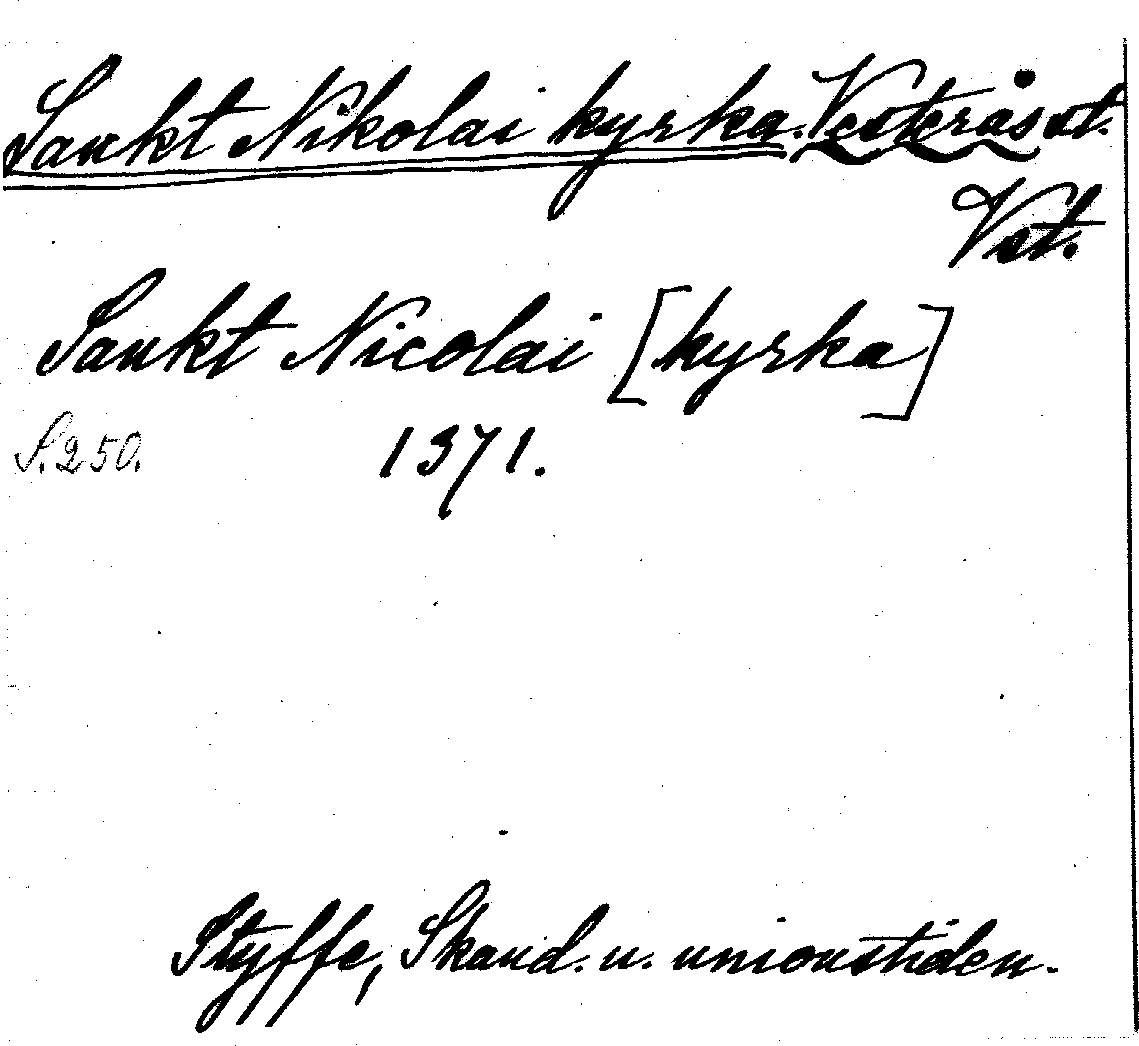 Sankt Nikolai kyrka. Vesterås st.
Vst.
Sankt Nicolai [kyrka]
S. 250. 1371.
Styffe, Skand. u. unionstiden.